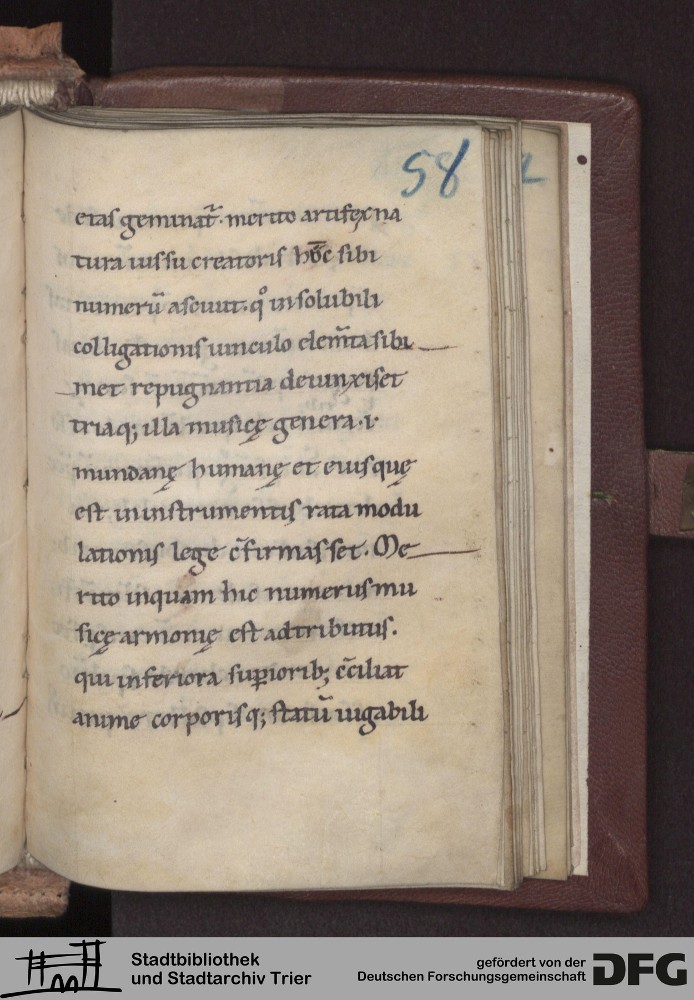 58
etas geminat᷒. merito artifex na
tura iussu creatoris hūc sibi
numerū asciuit. qͦ insolubili
colligationis uinculo elem̄ta sibi
met repugnantia deiunxisset
triaq; illa musicę genera .i.
mundanę humanę et eius quę
est in instrumentis rata modu
lationis lege c̄firmasset. Me
rito inquam hic numerus mu
sicę armonię est adtributus.
qui inferiora supiorib; c̄ciliat
anime corporisq; statū iugabili
Stadtbibliothek
und Stadtarchiv Trier
gefördert von der
Deutschen Forschungsgemeinschaft
DFG